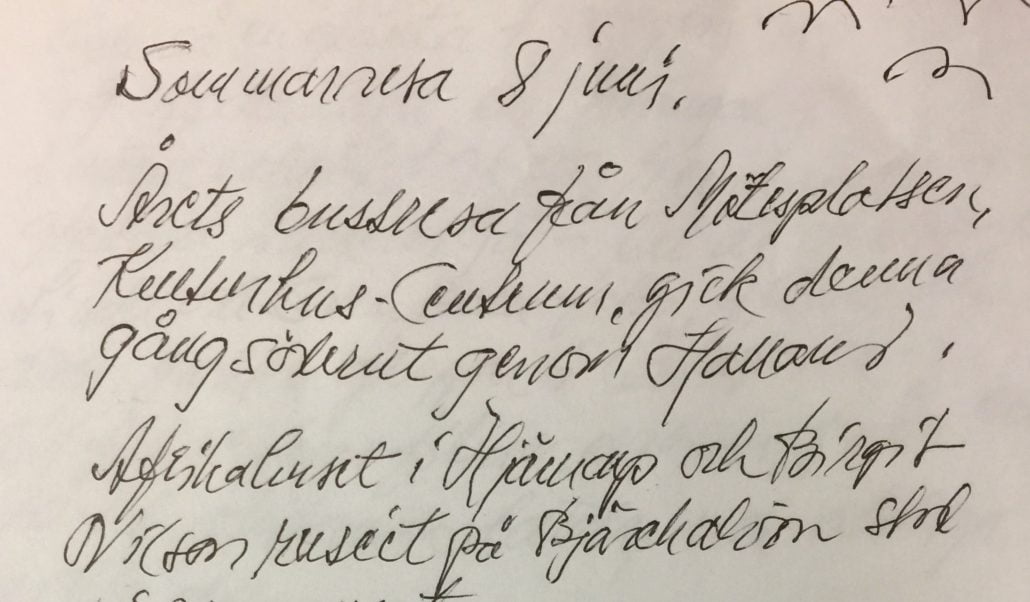 Sommarresa 8 juni.
Årets bussresa från Mötesplatsen,
Kulturhus-Centrum, gick denna
gång söderut genom Halland.
Afrikahuset i Hjärnarp och Birgit
Nilson museet på Bjärehalvön stod